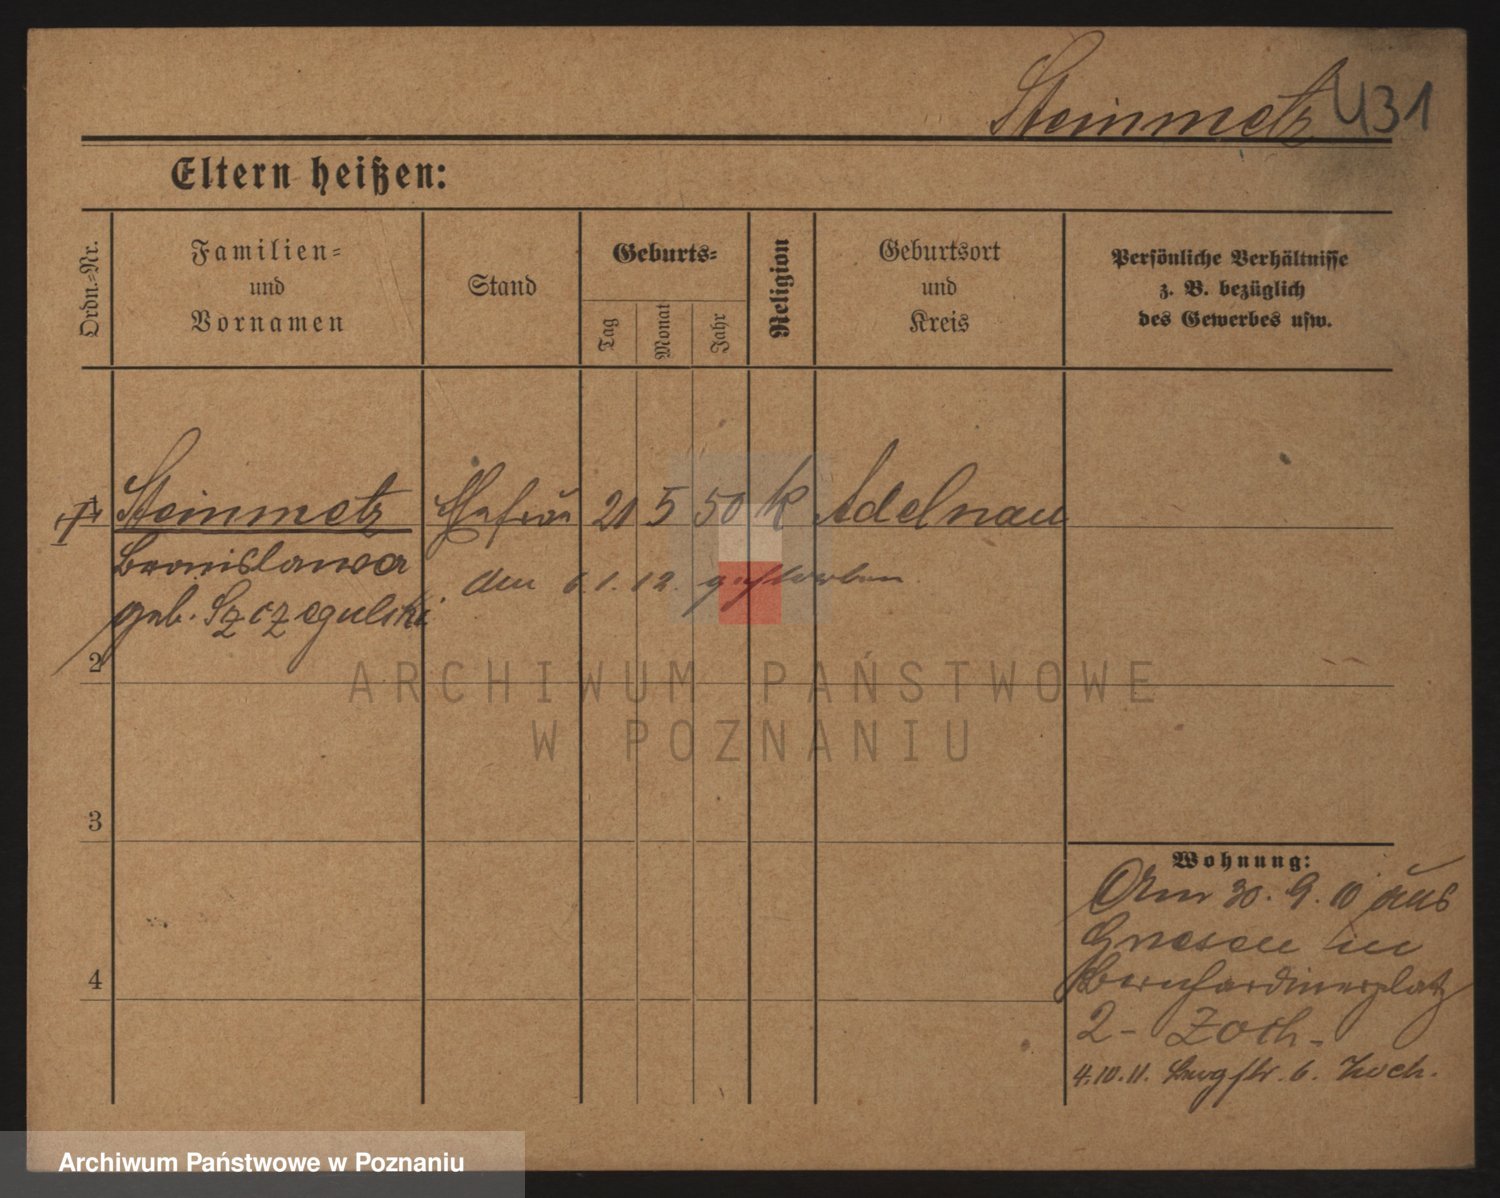 Steinmetz 431
Eltern heißen:
Ordn.-Nr.
Familien-
und
Vornamen
Stand
Geburts-
Tag
Monat
Jahr
Religion
Geburtsort
und
Kreis
Persönliche Verhältnisse
z. B. bezüglich
des Gewerbes usw.
Steinmetz 21 5 50 k Adelnau
Bronislawa
den 6.1.12. gestorben
geb. Szczegulski
2
ARCHIWUM PAŃSTWOWE
W POZNANIU
3
Wohnung:
Am 30. 9. 10 aus
Gnesen in
4
Bernhardinerplatz
2 - Zoch -
4.10.11. 6.
Archiwum Państwowe w Poznaniu